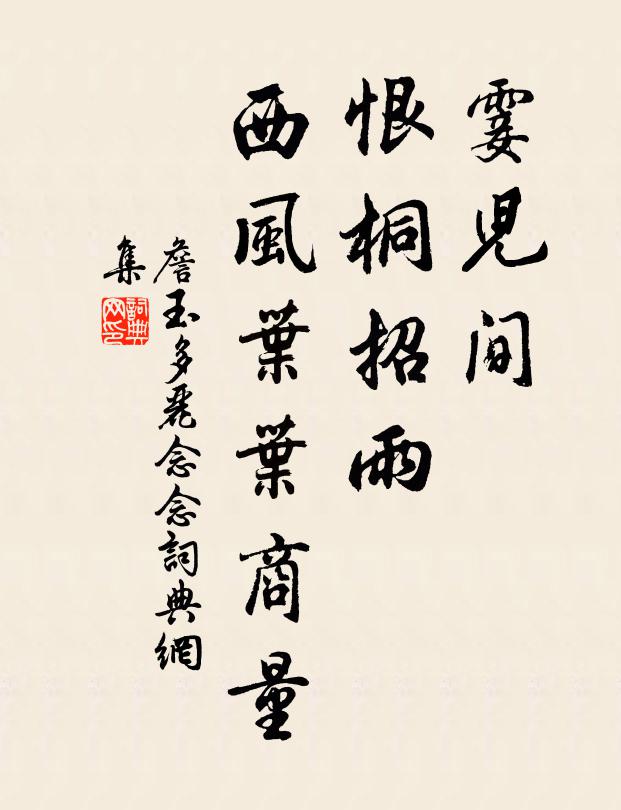 霎兒間
恨桐招雨
西風葉葉商量
詹玉多麗念念詞典網
集
詞典
网印